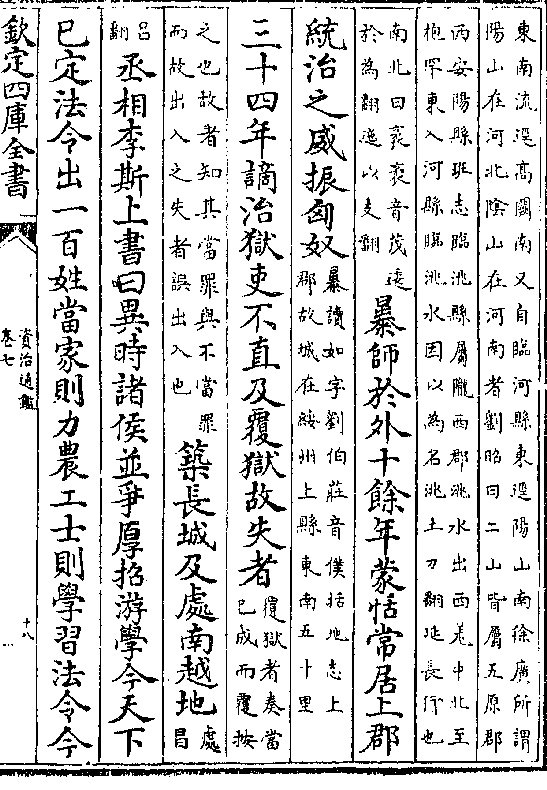 東南流逕高闕南又自臨河縣東逕陽山南徐廣所謂
陽山在河北隂山在河南者劉昭曰二山皆屬五原郡
西安陽縣班志臨洮縣屬隴西郡洮水出西羌中北至
枹罕東入河縣臨洮水因以為名洮土刀翻延長行也
南北曰袤袤音茂逶
於為翻迤以支翻
暴師於外十餘年蒙恬常居上郡
統治之威振匈奴
暴讀如字劉伯莊音僕括地志上
郡故城在綏州上縣東南五十里
三十四年謫治獄吏不直及覆獄故失者
覆獄者奏當
已成而覆按
之也故者知其當罪與不當罪
而故出入之失者誤出入也
築長城及處南越地
處昌
呂翻
丞相李斯上書曰異時諸侯並爭厚招游學今天下
已定法令出一百姓當家則力農工士則學習法令今
欽定四庫全書
資治通鑑
卷七
十八